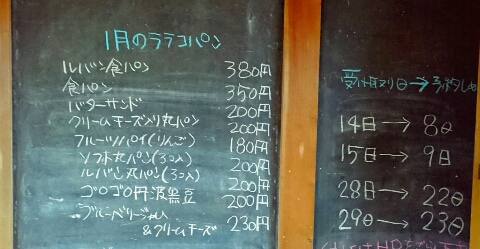 1月のララコパン
ルバン食パン 380円
食パン 350円
バターサンド 200円
クリームチーズ入り丸パン 200円
フルーツパイ(りんご) 180円
ソフト丸パン(3コ入) 200円
ルバン丸パン(3コ入) 200円
ゴロゴロ丹波黒豆 200円
ブルーベリージャム
&クリームチーズ 230円
受け取り日→
14日→8日
15日→9日
28日→22日
29日→23日